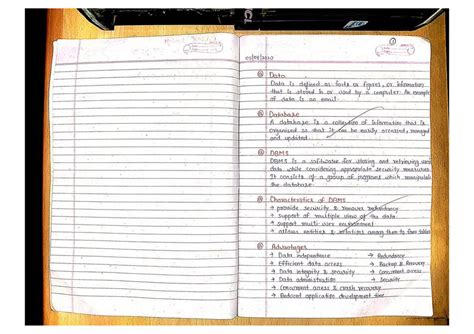 CL
1
03/09/2020
@ Data
Data is defined as facts or figures, or information
that is stored in or used by a computer. An example
of data is an email.
@ Database
A database is a collection of information that is
organised so that it can be easily accessed, managed
and updated.
@ DBMS
DBMS is a software for storing and retrieving user
data while considering appropriate security measures.
It consists of a group of programs which manipulate
the database.
@ Characteristics of DBMS
→ provide security & remover redundancy
→ support of multiple view of the data
→ support multi-user environment
→ allows entities & relations among them to form tables
@ Advantages
→ Data independence → Redundancy
→ Efficient data access → Backup & Recovery
→ Data integrity & security → Concurrent access
→ Data administration → Security
→ Concurrent access & crash recovery
→ Reduced application development time